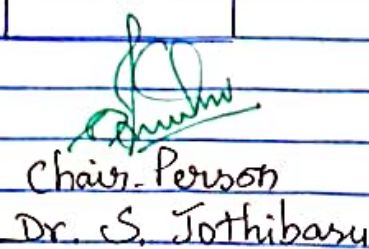 Chair-Person
Dr. S. Jothibasu